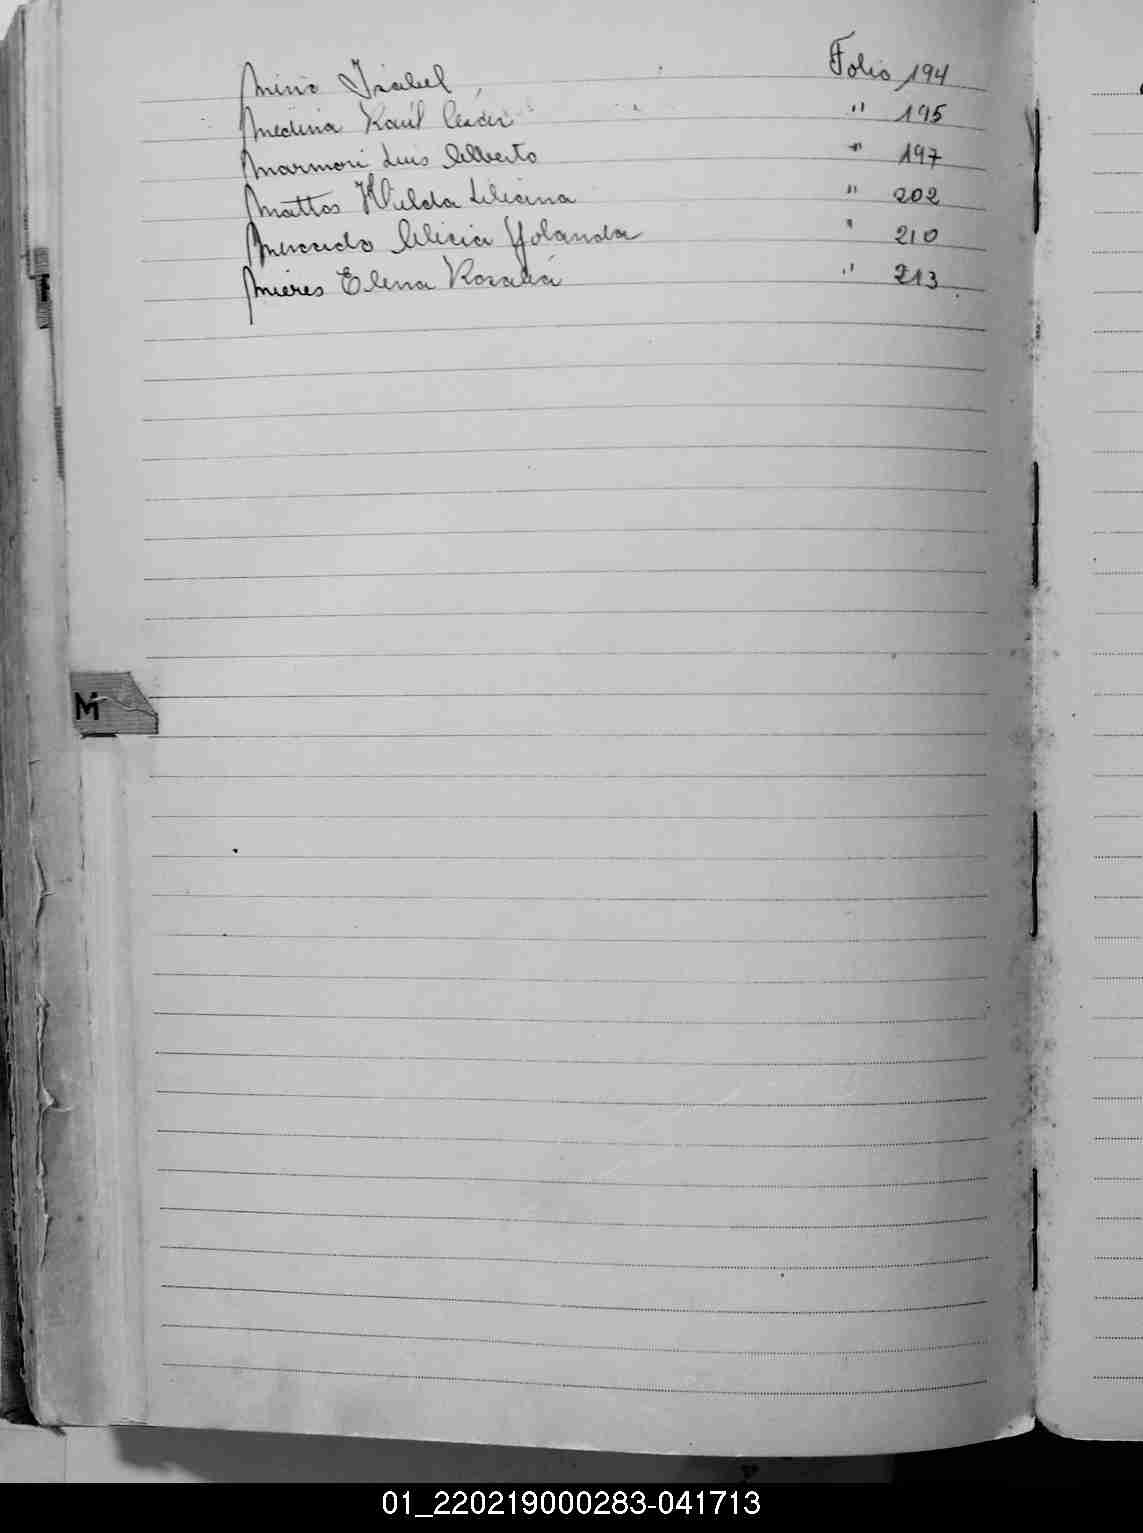 Miño Isabel Folio 194
Medina Raúl César " 195
Marmori Luis Alberto " 197
Mattos Hilda Liliana " 202
Mercado Alicia Yolanda " 210
Mieres Elena Rosalía " 213
M
01_220219000283-041713